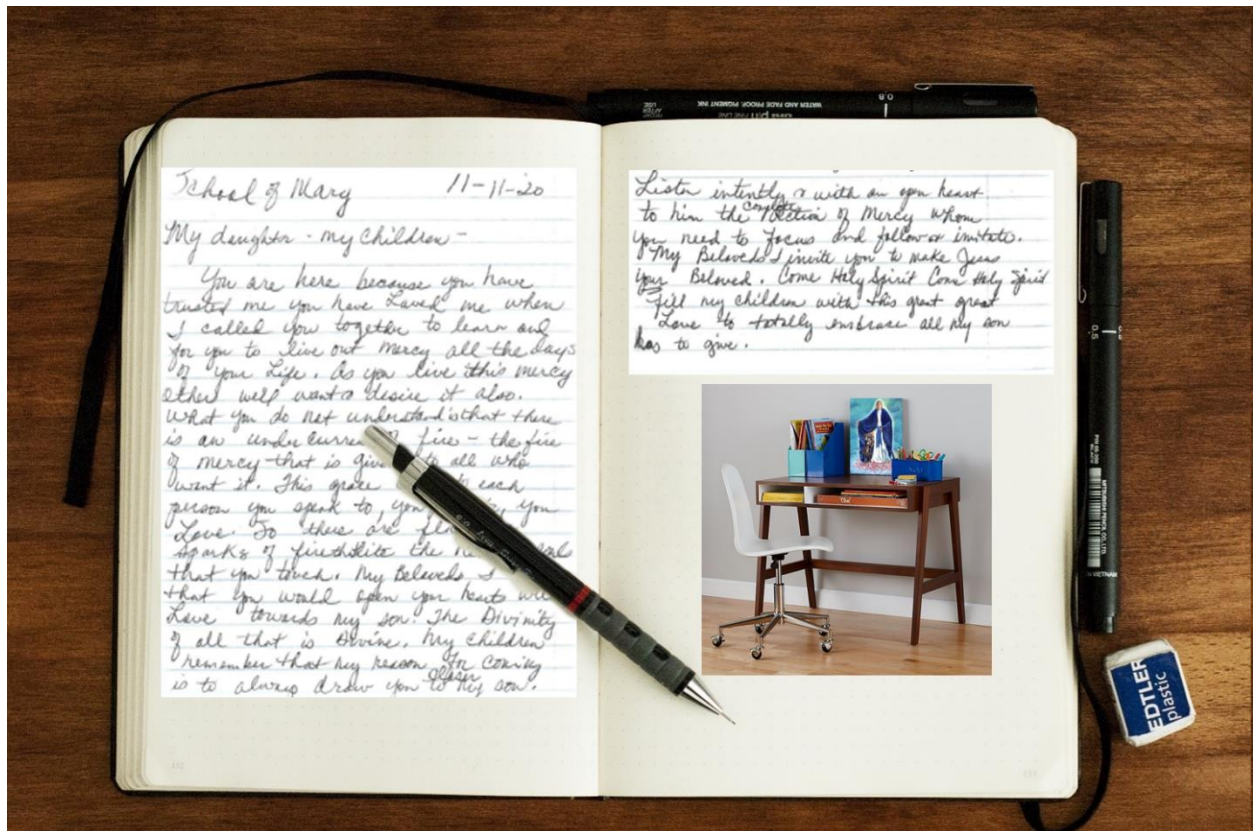 School of Mary 11-11-'20
My daughter - my children -
You are here because you have
trusted me you have Loved me when
I called you together to learn and
for you to live out mercy all the days
of your Life. As you live this mercy
others will want & desire it also.
What you do not understand is that there
is an under curre fire - the fire
of mercy that is giv to all who
want it. This grace to each
person you speak to, you you
Love. So there are
sparks of fire lite the
that you touch. My Beloveds I
that you would open your hearts
Love towards my son. The Divinity
of all that is Divine. My children
remember that my reason for coming
is to always draw you closer to my son.
Listen intently & with an open heart
to him the complete of Mercy whom
you need to focus and follow or imitate.
My Beloveds I invite you to make Jesus
your Beloved. Come Holy Spirit Come Holy Spirit
Fill my children with this great great
Love to totally embrace all my son
has to give.
WATER AND FADE PROOF, PIGMENT INK
pin FINE LINE
0.8
0.5
PIN
MITSUBISHI PENCIL CO., LTD.
VIETNAM
EDTLER
plastic